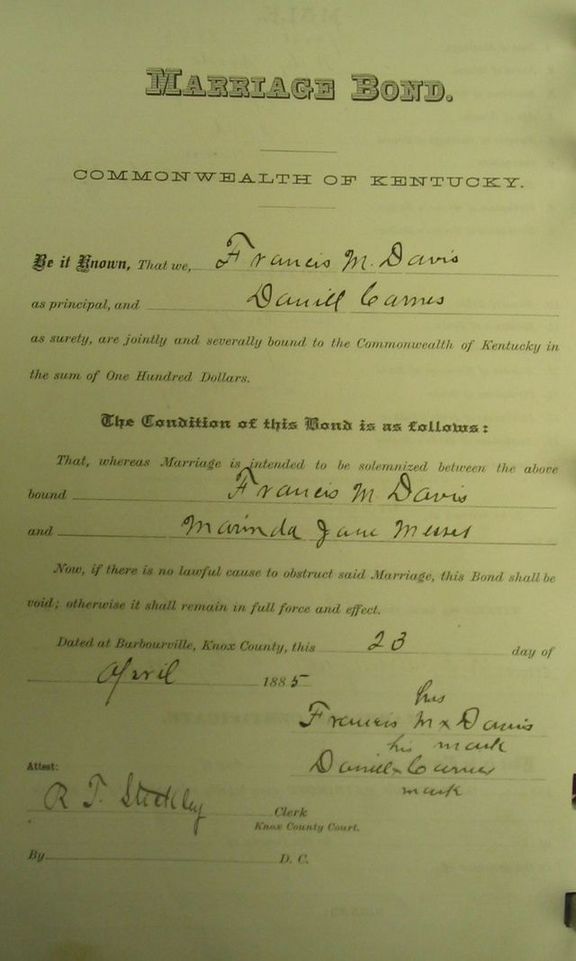 MARRIAGE BOND.
COMMONWEALTH OF KENTUCKY.
Be it Known, That we, Francis M. Davis
as principal, and Daniell Carnes
as surety, are jointly and severally bound to the Commonwealth of Kentucky in
the sum of One Hundred Dollars.
The Condition of this Bond is as follows:
That, whereas Marriage is intended to be solemnized between the above
bound Francis M Davis
and Marinda Jane
Now, if there is no lawful cause to obstruct said Marriage, this Bond shall be
void; otherwise it shall remain in full force and effect.
Dated at Barbourville, Knox County, this 23 day of
April 1885
his
Francis M x Davis
his mark
Daniell x Carnes
mark
Attest:
R. T. Clerk
Knox County Court.
By D. C.